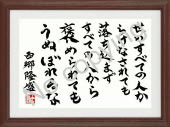 たといすべての人か
らけなされても
落ち込まず
すべての人から
褒められても
うぬぼれるな
西郷隆盛